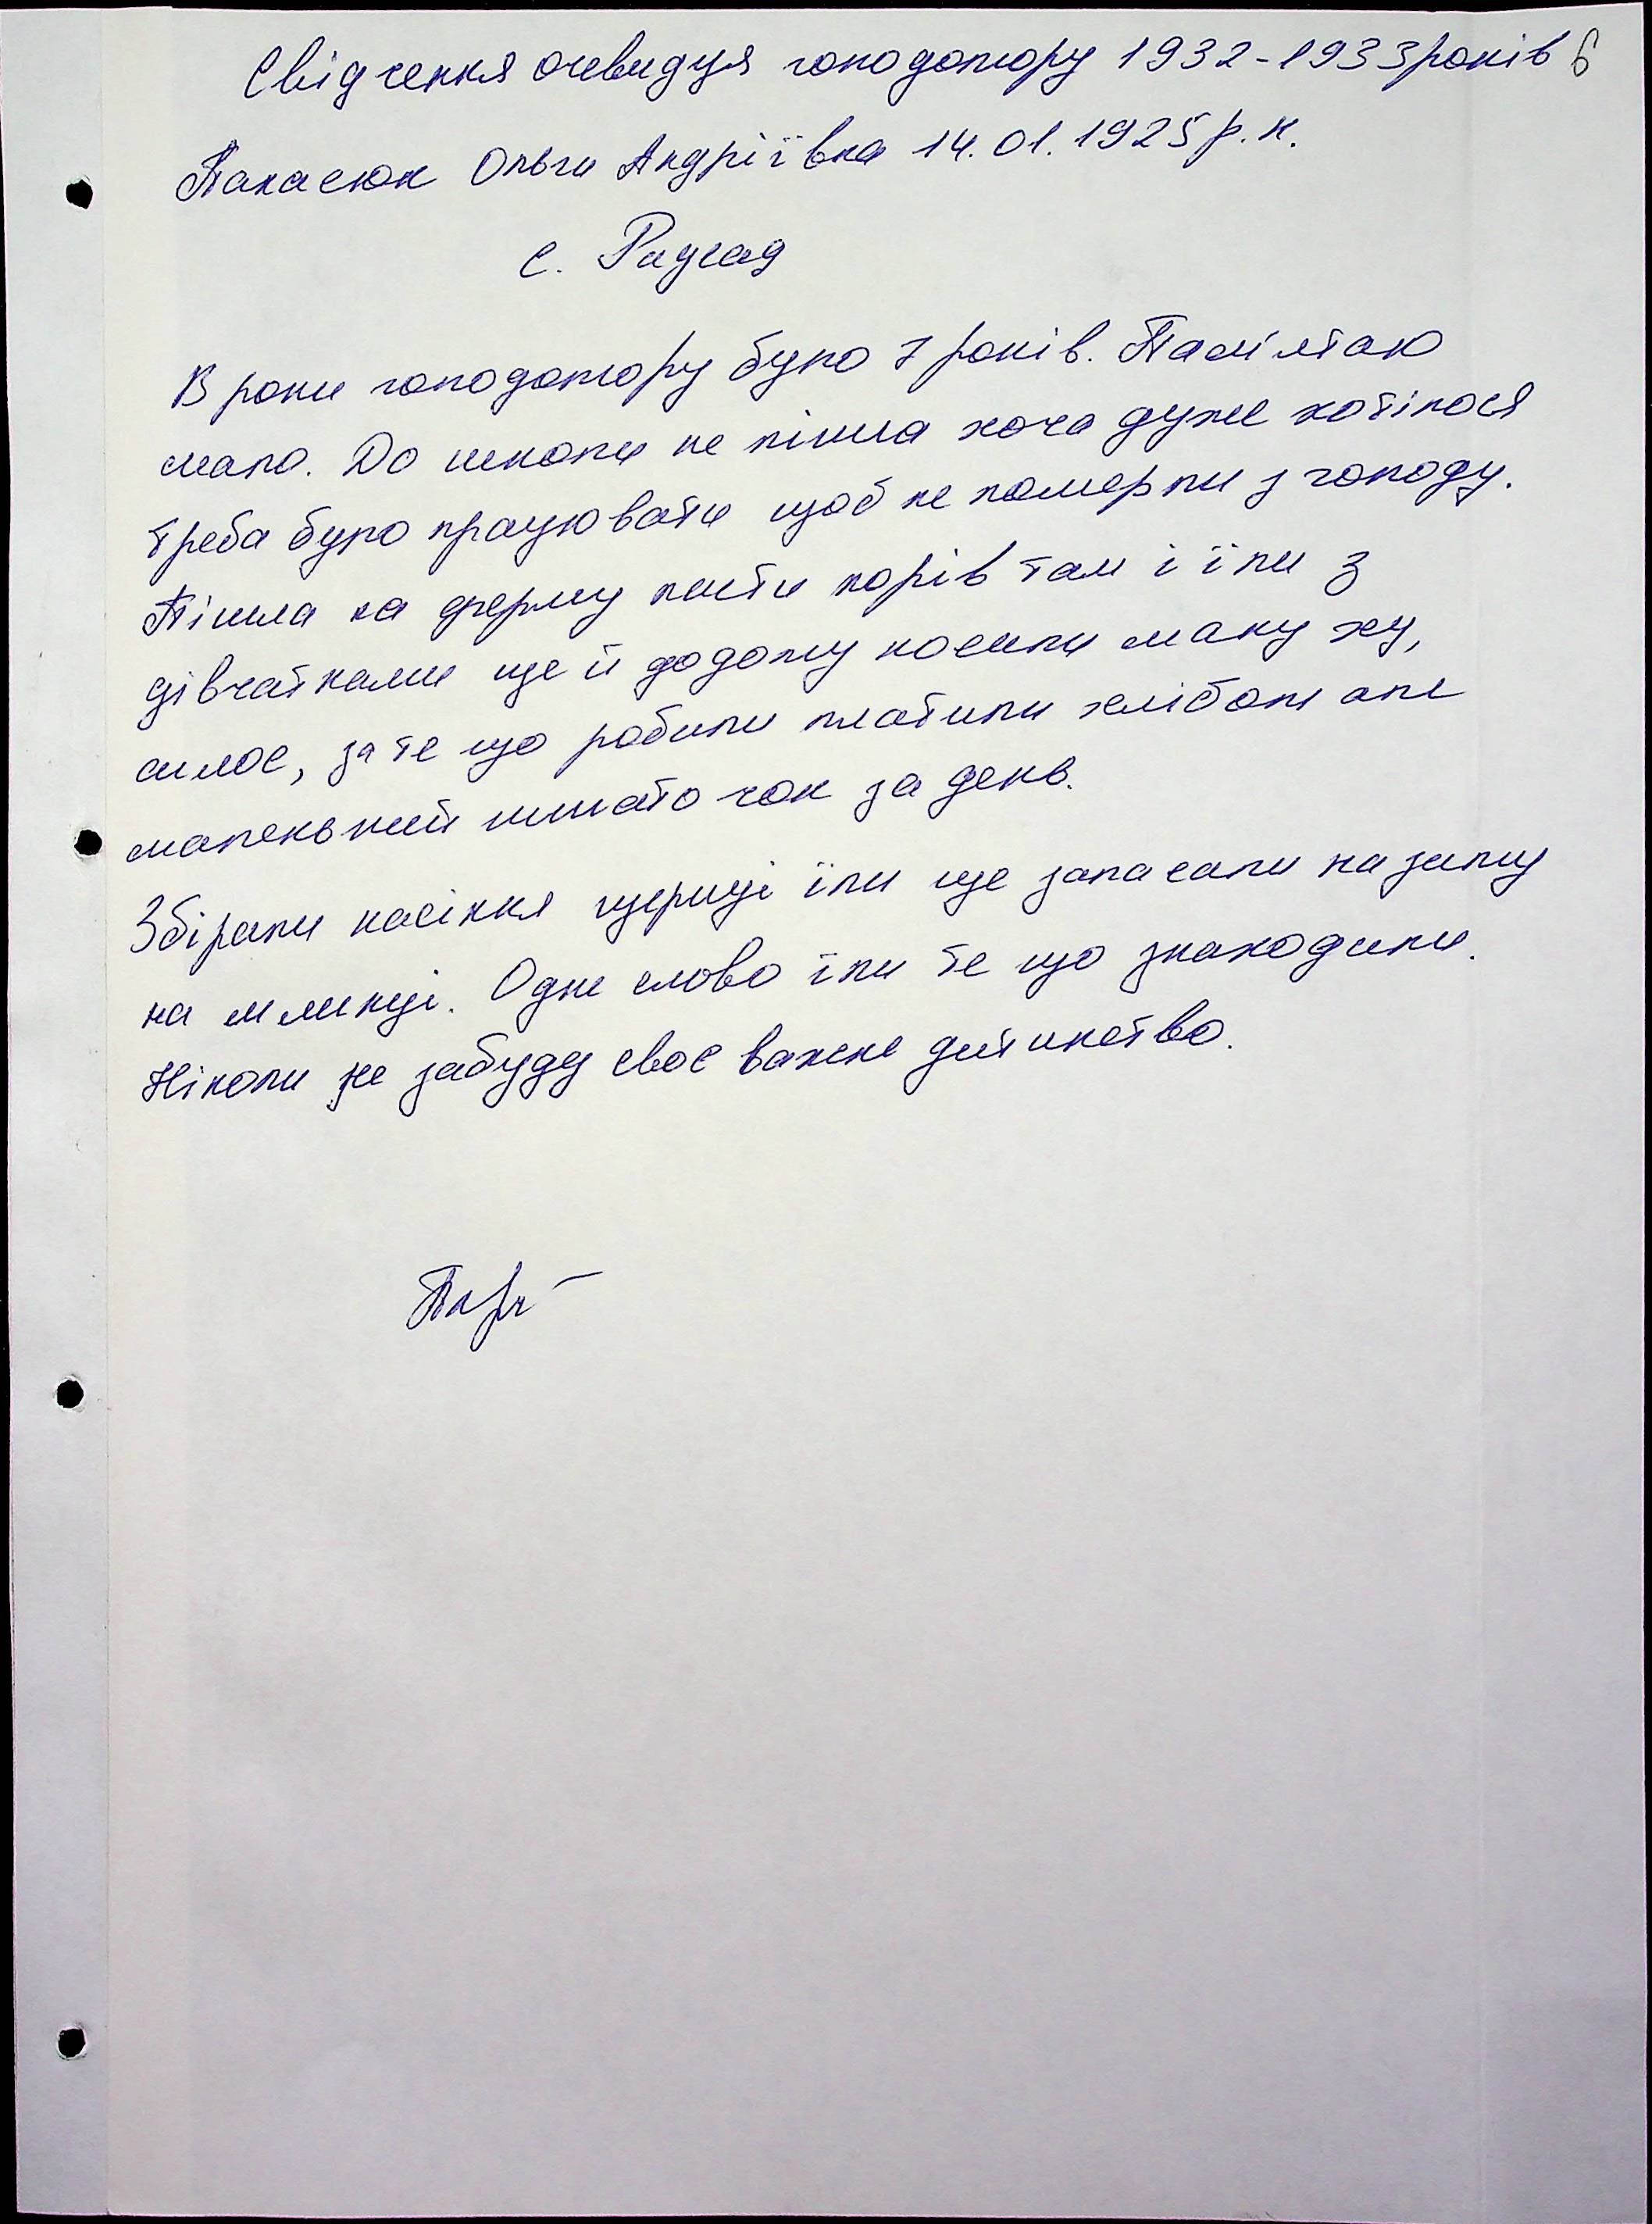 Свідчення очевидця голодомору 1932-1933 років 6
Панасюк Ольги Андріївна 14.01.1925 р.н.
с. Радгад
В роки голодомору було 7 років. Памімтаю
мало. До школи не пішла хоча дуже хотілося
треба було працювати щоб не померли з голоду.
Пішла на ферму пасти корів там і їли з
дівчатками ще й додому носили макуху,
силос, за те що робили платили хлібом але
маленький шматочок за день.
Збірали насіння щериці їли ще запасали на зиму
на млинці. Одне слово їли те що знаходили.
Ніколи не забуду своє важке дитинство.